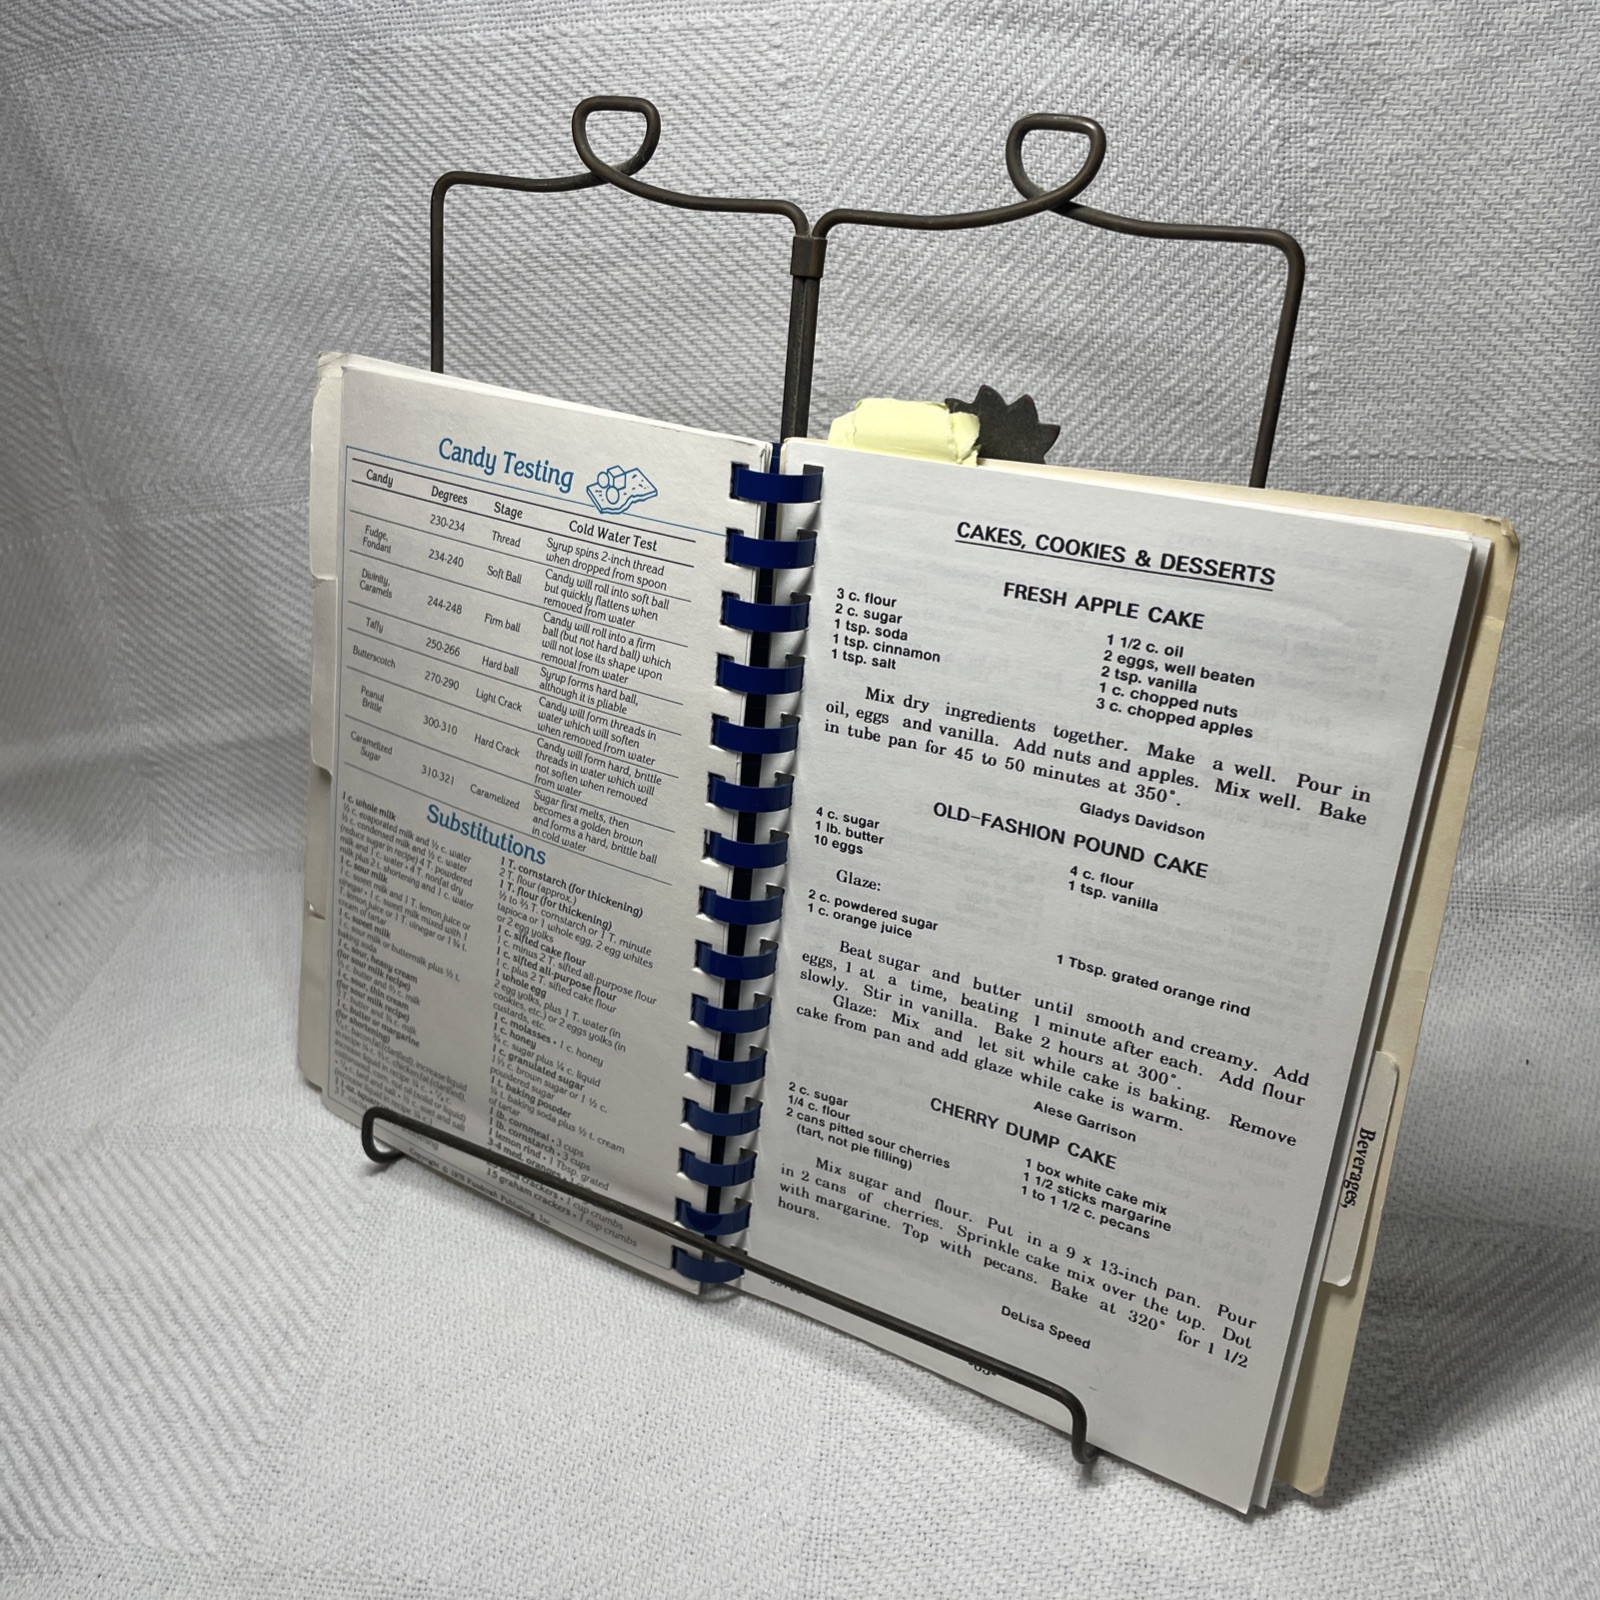 Candy Testing
Candy Degrees Stage Cold Water Test
230-234 Thread Syrup spins 2-inch thread
when dropped from spoon
Fudge,
Fondant 234-240 Soft Ball Candy will roll into soft ball
but quickly flattens when
removed from water
Divinity,
Caramels 244-248 Firm ball Candy will roll into a firm
ball (but not hard ball) which
will not lose its shape upon
removal from water
Taffy 250-266 Hard ball Syrup forms hard ball,
although it is pliable
Butterscotch 270-290 Light Crack Candy will form threads in
water which will soften
when removed from water
Peanut
Brittle 300-310 Hard Crack Candy will form hard, brittle
threads in water which will
not soften when removed
from water
Caramelized
Sugar 310-321 Caramelized Sugar first melts, then
becomes a golden brown
and forms a hard, brittle ball
in cold water
Substitutions
1 c. whole milk
½ c. evaporated milk and ½ c. water
½ c. condensed milk and ½ c. water
(reduce sugar in recipe) 4 T. powdered
milk and 1 c. water • 4 T. nonfat dry
milk plus 2 t. shortening and 1 c. water
1 c. sour milk
1 c. sweet milk and 1 T. lemon juice or
vinegar • 1 c. sweet milk mixed with 1
T. lemon juice or 1 T. vinegar or 1 ¾ t.
cream of tartar
1 c. sweet milk
1 c. sour milk or buttermilk plus ½ t.
baking soda
1 c. sour, heavy cream
(for sour milk recipe)
1 c. sour, thin cream
(for sour milk recipe)
1 c. butter or margarine
(for shortening)
1 T. cornstarch (for thickening)
2 T. flour (approx.)
1 T. flour (for thickening)
½ to ⅔ T. cornstarch or 1 T. minute
tapioca or 1 whole egg, 2 egg whites
or 2 egg yolks
1 c. sifted cake flour
1 c. minus 2 T. sifted all-purpose flour
1 c. sifted all-purpose flour
1 c. plus 2 T. sifted cake flour
1 whole egg
2 egg yolks, plus 1 T. water (in
cookies, etc.) or 2 eggs yolks (in
custards, etc.
1 c. molasses • 1 c. honey
1 c. honey
¾ c. sugar plus ¼ c. liquid
1 c. granulated sugar
1 ⅓ c. brown sugar or 1 ½ c.
powdered sugar
1 t. baking powder
¼ t. baking soda plus ½ t. cream
of tartar
1 lb. cornmeal • 3 cups
1 lb. cornstarch • 3 cups
1 lemon rind • 1 Tbsp. grated
3-4 med. oranges
crackers • 1 cup crumbs
15 graham crackers • 1 cup crumbs
CAKES, COOKIES & DESSERTS
FRESH APPLE CAKE
3 c. flour
2 c. sugar
1 tsp. soda
1 tsp. cinnamon
1 tsp. salt
1 1/2 c. oil
2 eggs, well beaten
2 tsp. vanilla
1 c. chopped nuts
3 c. chopped apples
Mix dry ingredients together. Make a well. Pour in
oil, eggs and vanilla. Add nuts and apples. Mix well. Bake
in tube pan for 45 to 50 minutes at 350°.
Gladys Davidson
OLD-FASHION POUND CAKE
4 c. sugar
1 lb. butter
10 eggs
4 c. flour
1 tsp. vanilla
Glaze:
2 c. powdered sugar
1 c. orange juice
1 Tbsp. grated orange rind
Beat sugar and butter until smooth and creamy. Add
eggs, 1 at a time, beating 1 minute after each. Add flour
slowly. Stir in vanilla. Bake 2 hours at 300°.
Glaze: Mix and let sit while cake is baking. Remove
cake from pan and add glaze while cake is warm.
Alese Garrison
CHERRY DUMP CAKE
2 c. sugar
1/4 c. flour
2 cans pitted sour cherries
(tart, not pie filling)
1 box white cake mix
1 1/2 sticks margarine
1 to 1 1/2 c. pecans
Mix sugar and flour. Put in a 9 x 13-inch pan. Pour
in 2 cans of cherries. Sprinkle cake mix over the top. Dot
with margarine. Top with pecans. Bake at 320° for 1 1/2
hours.
DeLisa Speed
Beverages,